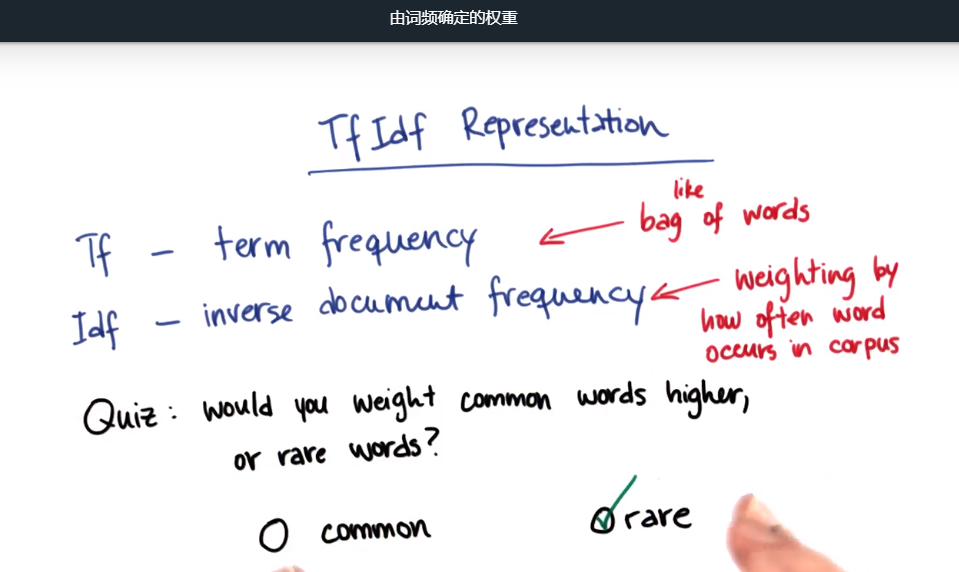 由词频确定的权重
Tf Idf Representation
like
Tf – term frequency bag of words
Idf – inverse document frequency weighting by
how often word
occurs in corpus
Quiz: would you weight common words higher,
or rare words?
common rare